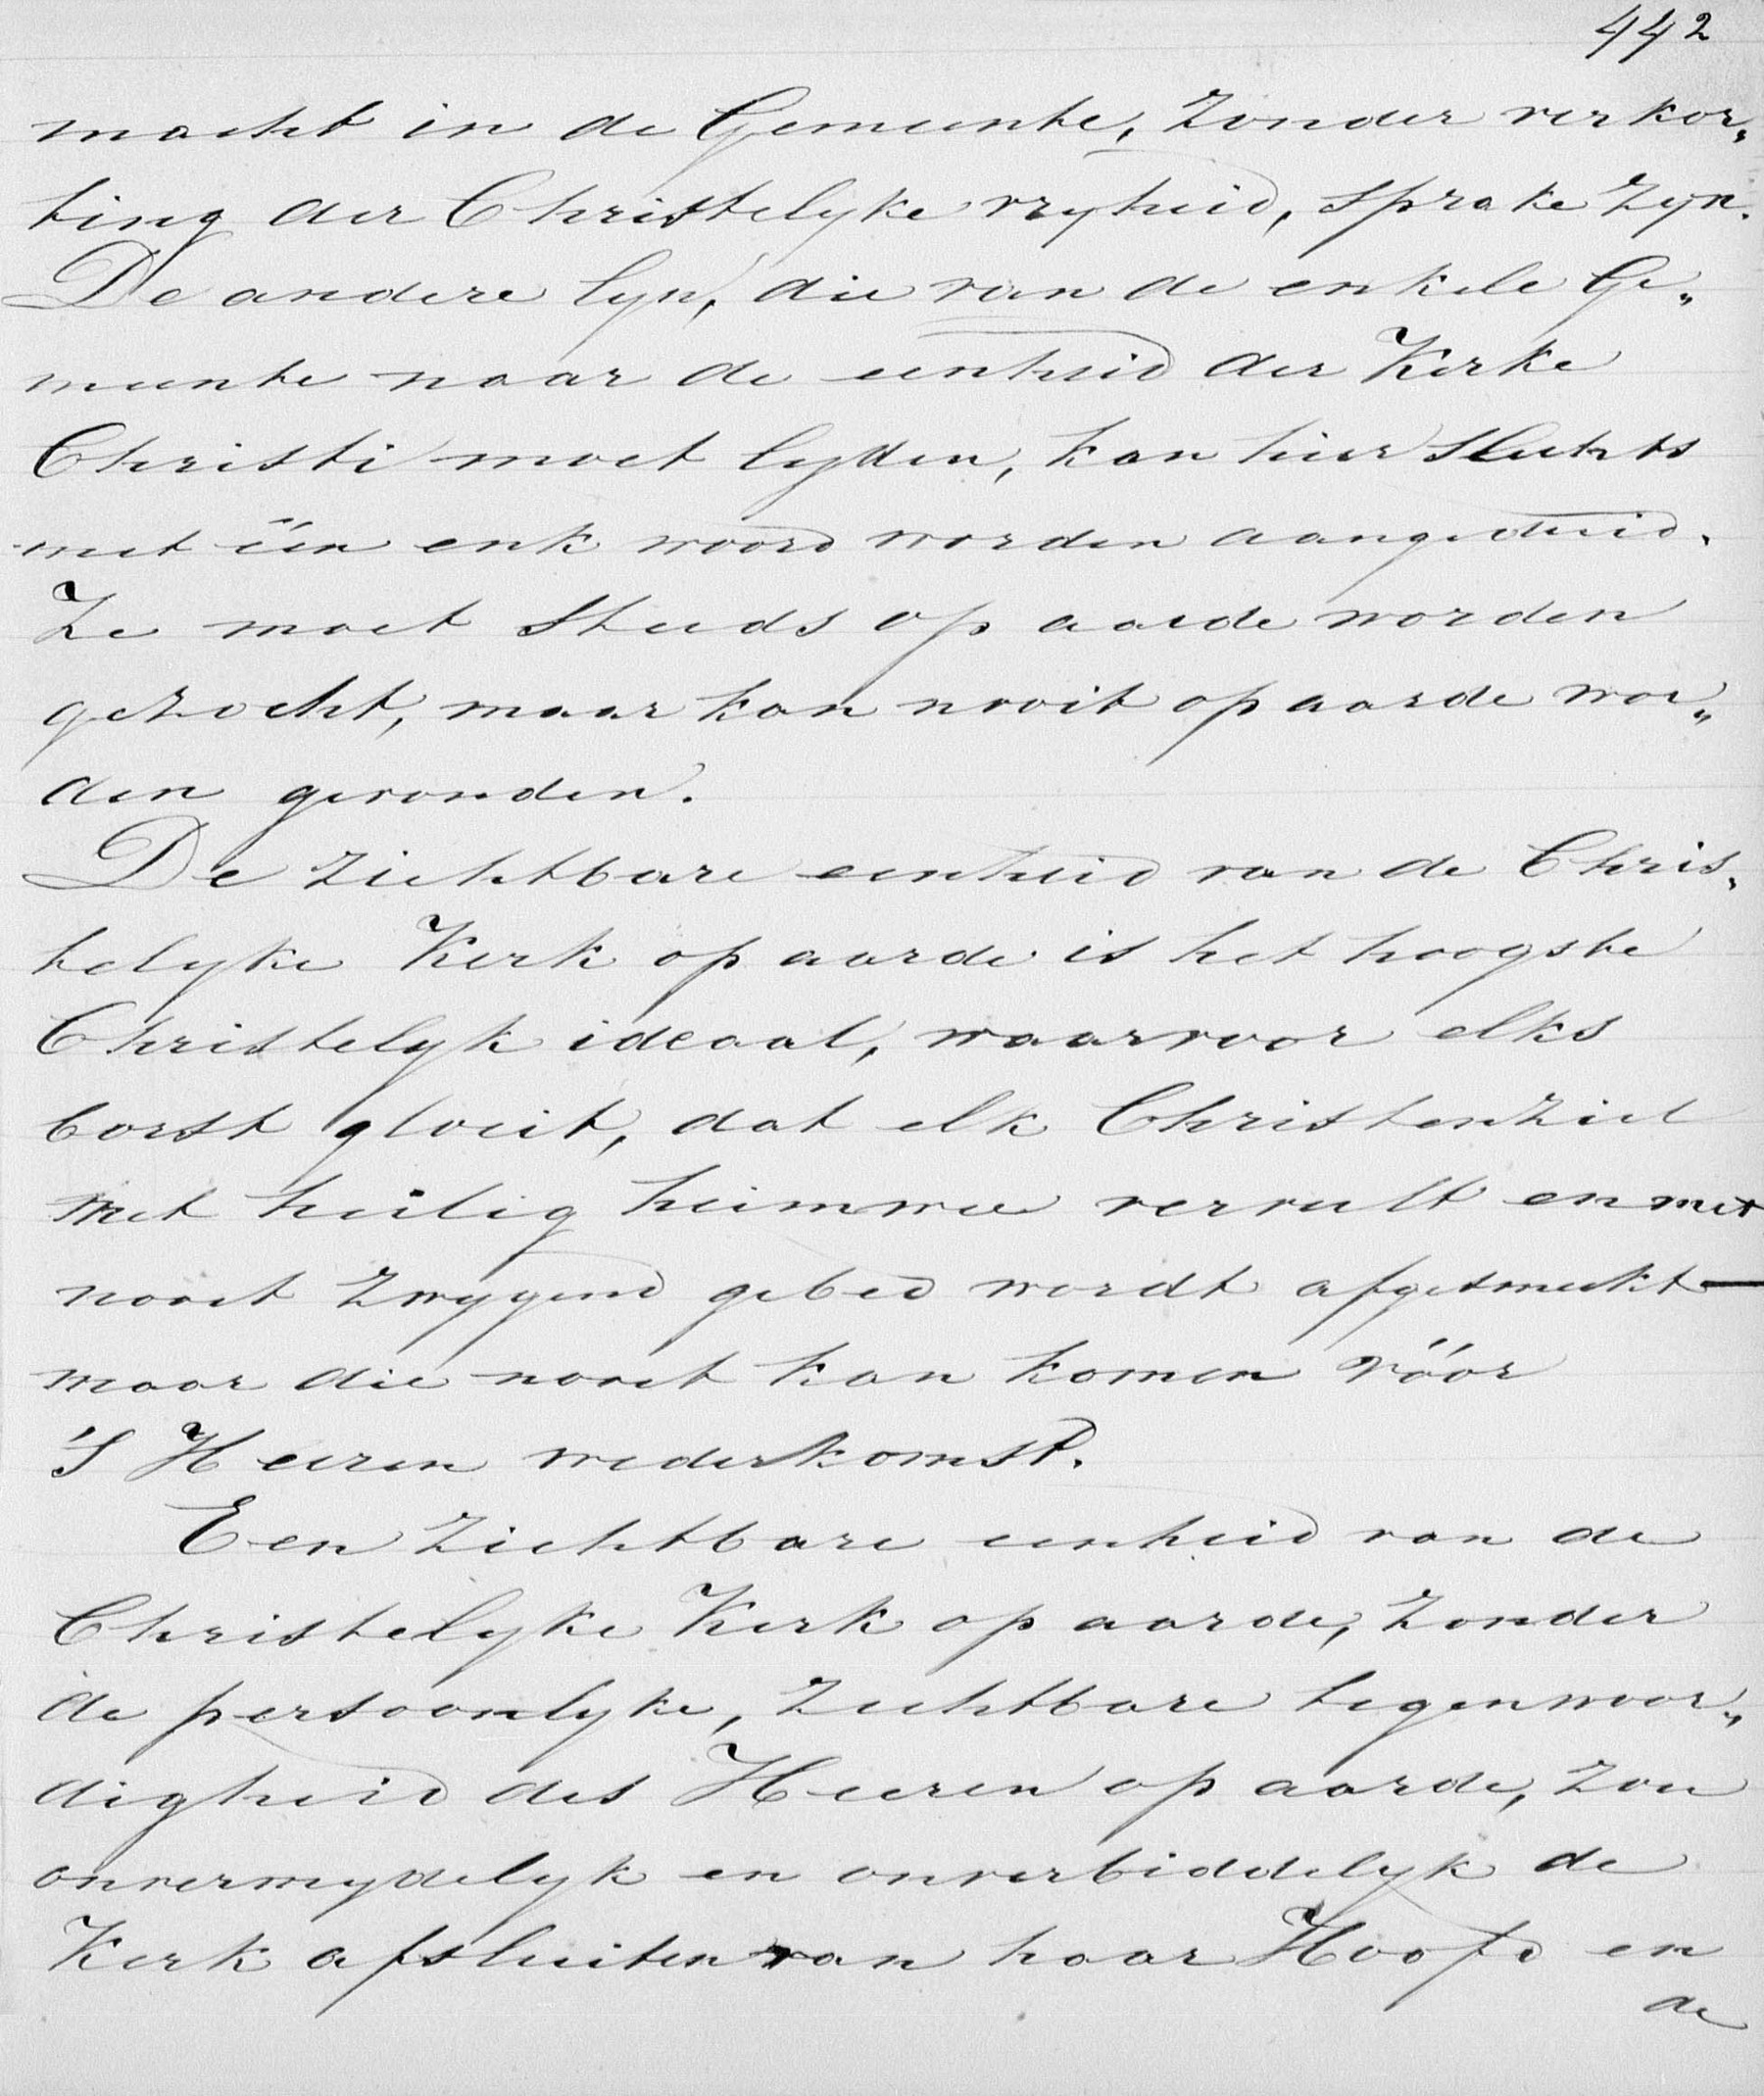 442
macht in de Gemeente, zonder verkor„
ting der Christelyke vryheid, sprake zyn.
De andere lyn, die van de enkele Ge„
meente naar de eenheid der Kerke
Christi moet lyden, kan hier slechts
met één enk woord worden aangeduid.
Ze moet steeds op aarde worden
gezocht, maar kan nooit op aarde wor„
den gevonden.
De zichtbare eenheid van de Chris„
telyke Kerk op aarde is het hoogste
Christelyk ideaal, waarvoor elks
borst gloeit, dat elk Christenziel
met heilig heimwee vervult en met
nooit zwygend gebed wordt afgesmeekt —
maar die nooit kan komen vóór
'S Heeren wederkomst.
Een zichtbare eenheid van de
Christelyke Kerk op aarde, zonder
de persoonlyke, zichtbare tegenwoor„
digheid des Heeren op aarde, zou
onvermydelyk en onverbiddelyk de
Kerk afsluiten van haar Hoofd en
de